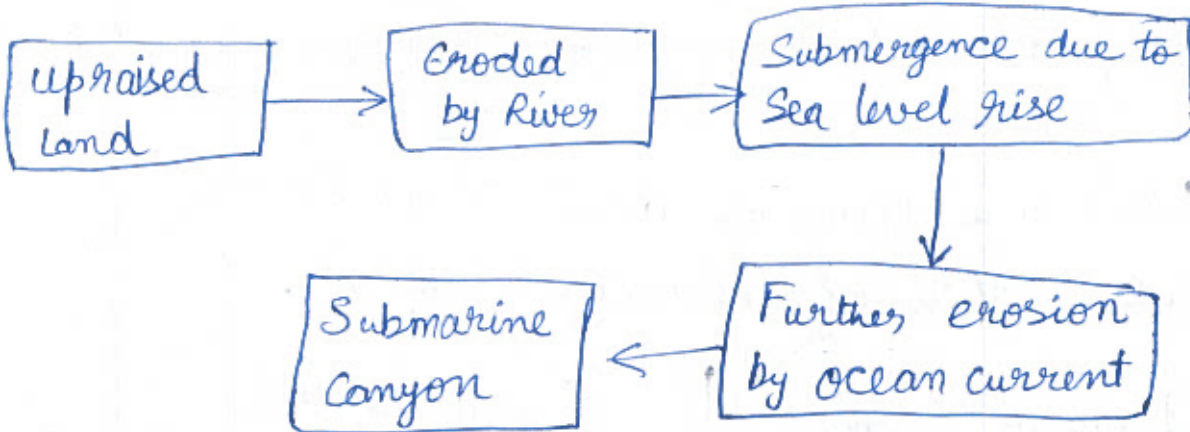 upraised
Land
Eroded
by River
Submergence due to
Sea level rise
Further erosion
by ocean current
Submarine
Canyon